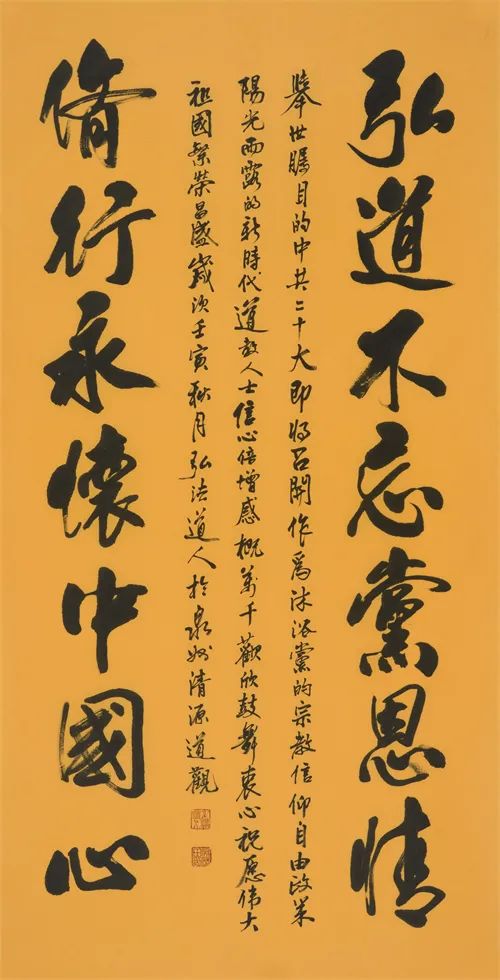 弘道不忘黨恩情
舉世矚目的中共二十大即将召開作爲沐浴黨的宗教信仰自由政策
陽光雨露的新時代道教人士信心倍增感概萬千歡欣鼓舞衷心祝愿伟大
祖國繁榮昌盛歲次壬寅秋月弘法道人於泉州清源道觀
脩行永懷中國心